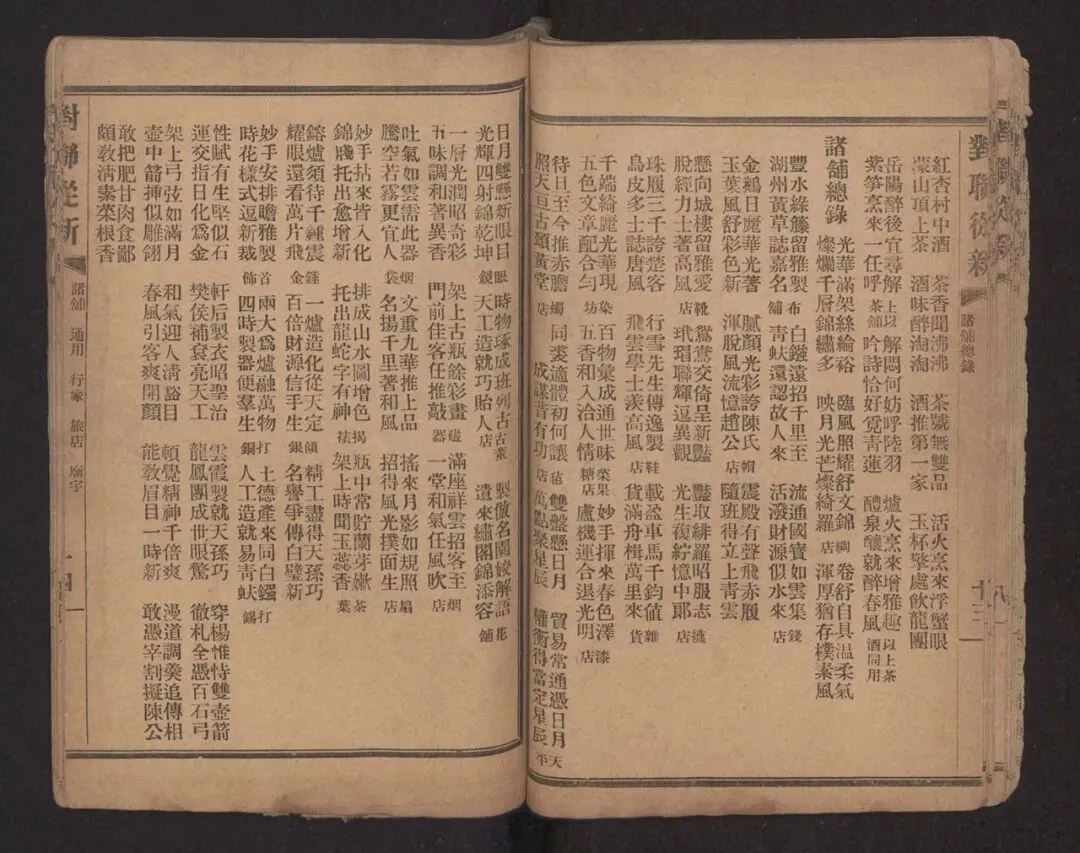 對聯從新
諸舖總錄
十三
紅杏村中酒 茶香聞沸沸 茶號無雙品 活火烹來浮蟹眼
蒙山頂上茶 酒味醉淘淘 酒推第一家 玉杯擎處飲龍團
岳陽醉後宜尋解 以上 解悶何妨呼陸羽 爐火烹來增雅趣 以上茶
紫笋烹來一任呼 茶舖 吟詩恰好覓靑蓮 醴泉釀就醉春風 酒同用
諸舖總錄
光華滿架絲綸裕 臨風照耀舒文錦 綢 卷舒自具温柔氣
燦爛千層錦繡多 映月光芒燦綺羅 店 渾厚猶存樸素風
豐水綠籐留雅製 布 白鏹遠招千里至 流通國寶如雲集 錢
湖州黃草誌嘉名 舖 靑蚨還認故人來 活潑財源似水來 店
金鵝日麗華光著 膩顏光彩誇陳氏 帽 震殿有聲飛赤履
玉葉風舒彩色新 渾脫風流憶趙公 店 隨班得立上靑雲
懸向城樓留雅愛 靴 鴛鴦交倚呈新豔 豔取緋羅昭服志
脫經力士著高風 店 玳瑁聯輝逗異觀 光生復綯憶中郞 店
珠履三千誇楚客 行雪先生傳逸製 鞋 載盈車馬千鈞値 雜
鳥皮多士誌唐風 飛雲學士羨高風 店 貨滿舟楫萬里來 貨
千端綺麗光華現 染 百物彙成通世味 菜果 妙手揮來春色澤 漆
五色文章配合勻 坊 五香和入洽人情 糖店 盧機連合退光明 店
待旦至今推赤膽 燭 同裘適體初何讓 毡 雙盤懸日月 貿易常通憑日月 天
照天亘古頌黃堂 店 成謀昔有功 店 萬點聚星辰 權衡得當定星辰 平
日月雙懸新眼目 眼 時物琢成班列古 古董 製倣名園姣解語 花
光輝四射錦乾坤 鏡 天工造就巧貽人 店 遺來繡閣錦添容 舖
一層光潤昭奇彩 架上古瓶餘彩畫 磁 滿座祥雲招客至 烟
五味調和著異香 門前佳客任推敲 器 一堂和氣任風吹 店
吐氣如雲需此器 烟 文重九華推上品 搖來月影如規照 扇
騰空若霧更宜人 袋 名揚千里著和風 招得風光撲面生 店
妙手拈來皆入化 排成山水圖增色 揭 瓶中常貯蘭芽嫩 茶
錦牋托出愈增新 托出龍蛇字有神 祛 架上時聞玉蕊香 葉
鎔爐須待千錘震 錘 一爐造化從天定 傾 精工盡得天孫巧
耀眼還看萬片飛 金 百倍財源信手生 銀 名譽爭傳白璧新
妙手安排瞻雅製 首 兩大爲爐融萬物 打 土德產來同白鏹 打
時花樣式逗新裁 飾 四時製器便羣生 銅 人工造就易靑蚨 錫
性賦有生堅似石 軒后製衣昭聖治 雲霞製就天孫巧 穿楊惟恃雙壺箭
運交指日化爲金 樊侯補袞亮天工 龍鳳團成世眼驚 徹札全憑百石弓
架上弓弦如滿月 和氣迎人淸豁目 頓覺精神千倍爽 漫道調羹追傳相
壺中箭揷似雕翎 春風引客爽開顏 能敎眉目一時新 敢憑宰割擬陳公
敢把肥甘肉食鄙
頗敎淸素菜根香
對聯從新
諸舖 通用 行家 旅店 廟宇